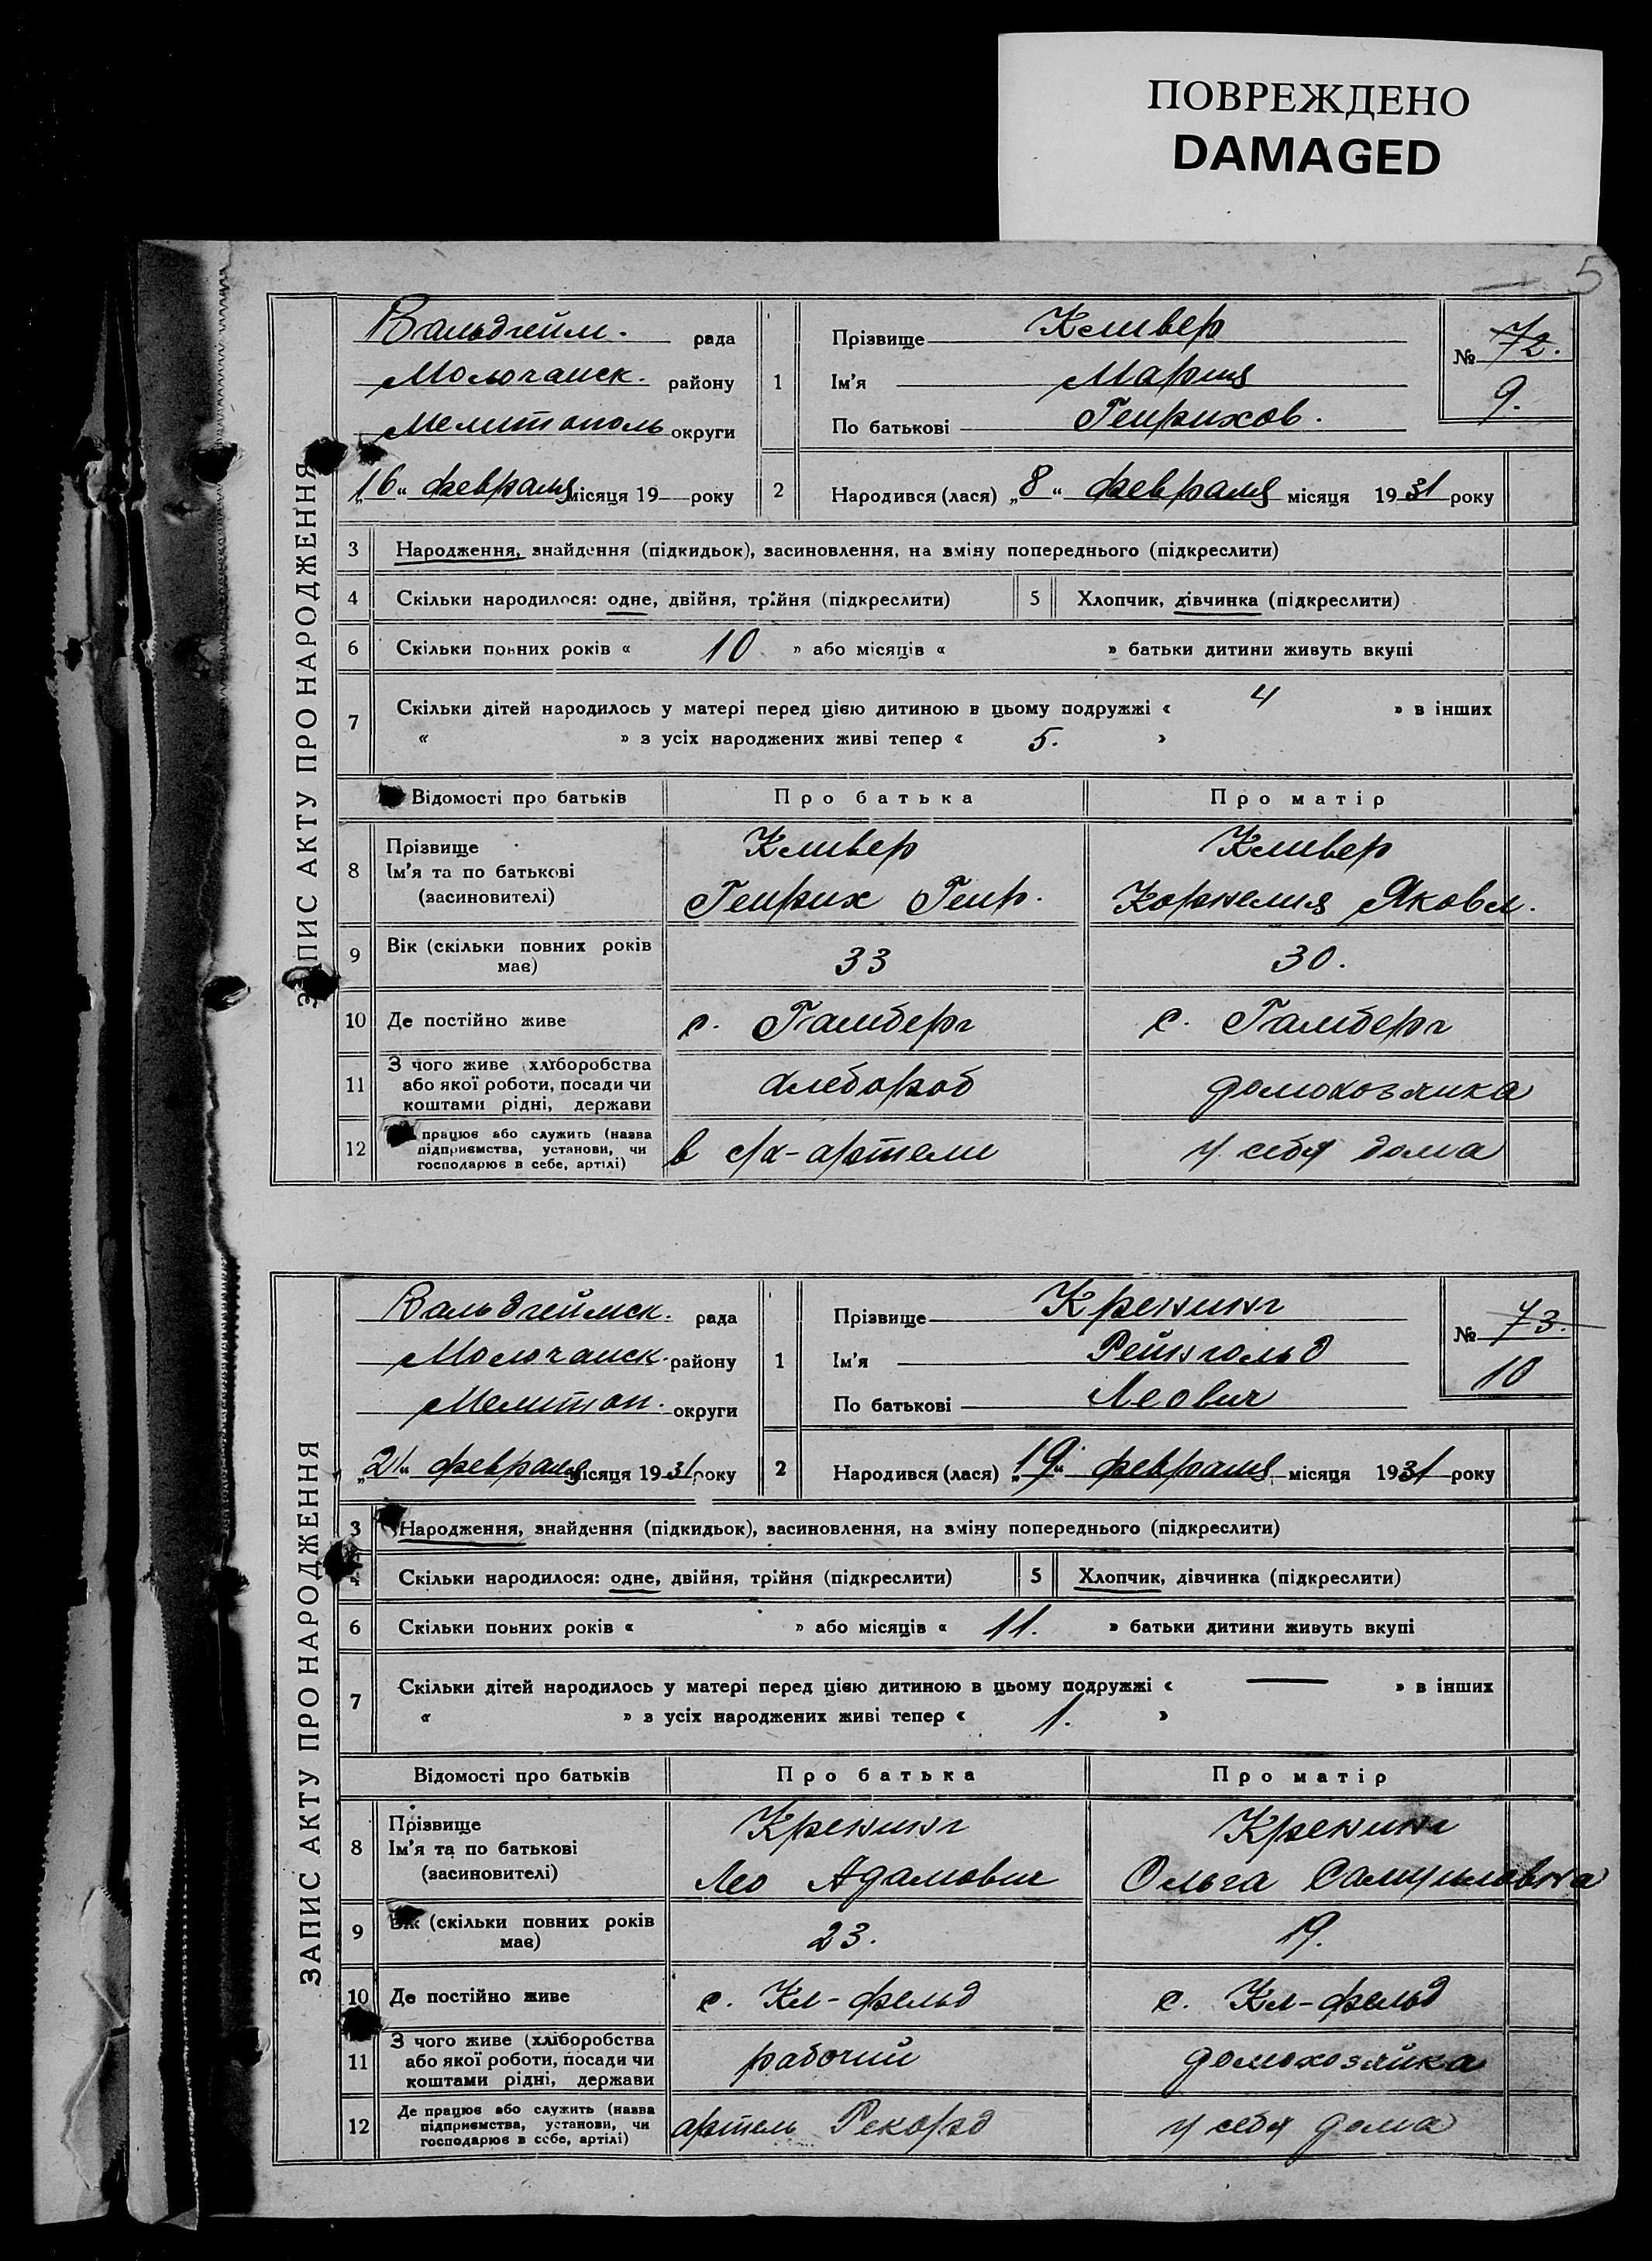 ПОВРЕЖДЕНО
DAMAGED
5
ЗАПИС АКТУ ПРО НАРОДЖЕННЯ
Вальдгейм. рада
Молочанск. району
Мелитополь округи
„16“ февраля місяця 19 року
1 Прізвище Кливер
Ім'я Мария
По батькові Генрихов.
№ 72.
9.
2 Народився (лася) „8“ февраля місяця 1931 року
3 Народження, знайдення (підкидьок), засиновлення, на зміну попереднього (підкреслити)
4 Скільки народилося: одне, двійня, трійня (підкреслити) 5 Хлопчик, дівчинка (підкреслити)
6 Скільки повних років « 10 » або місяців « » батьки дитини живуть вкупі
7 Скільки дітей народилось у матері перед цією дитиною в цьому подружжі « 4 » в інших
« » з усіх народжених живі тепер « 5. »
Відомості про батьків Про батька Про матір
8 Прізвище Кливер Кливер
Ім'я та по батькові Генрих Генр. Корнелия Яковл.
(засиновителі)
9 Вік (скільки повних років має) 33 30.
10 Де постійно живе с. Гамберг с. Гамберг
11 З чого живе (хліборобства
або якої роботи, посади чи хлебороб домохозяика
коштами рідні, держави
12 працює або служить (назва
підприємства, установи, чи в с/х-артели у себя дома
господарює в себе, артілі)
ЗАПИС АКТУ ПРО НАРОДЖЕННЯ
Вальдгеймск. рада
Молочанск. району
Мелитоп. округи
„21“ февраля місяця 1931 року
1 Прізвище Кренинг
Ім'я Рейнгольд
По батькові Леович
№ 73.
10
2 Народився (лася) „19“ февраля місяця 1931 року
3 Народження, знайдення (підкидьок), засиновлення, на зміну попереднього (підкреслити)
4 Скільки народилося: одне, двійня, трійня (підкреслити) 5 Хлопчик, дівчинка (підкреслити)
6 Скільки повних років « » або місяців « 11. » батьки дитини живуть вкупі
7 Скільки дітей народилось у матері перед цією дитиною в цьому подружжі « — » в інших
« » з усіх народжених живі тепер « 1. »
Відомості про батьків Про батька Про матір
8 Прізвище Кренинг Кренинг
Ім'я та по батькові Лео Адамович Ольга Самуиловна
(засиновителі)
9 Вік (скільки повних років має) 23. 19.
10 Де постійно живе с. Кл-фельд с. Кл-фельд
11 З чого живе (хліборобства
або якої роботи, посади чи рабочий домохозяйка
коштами рідні, держави
12 Де працює або служить (назва
підприємства, установи, чи артель Рекорд у себя дома
господарює в себе, артілі)